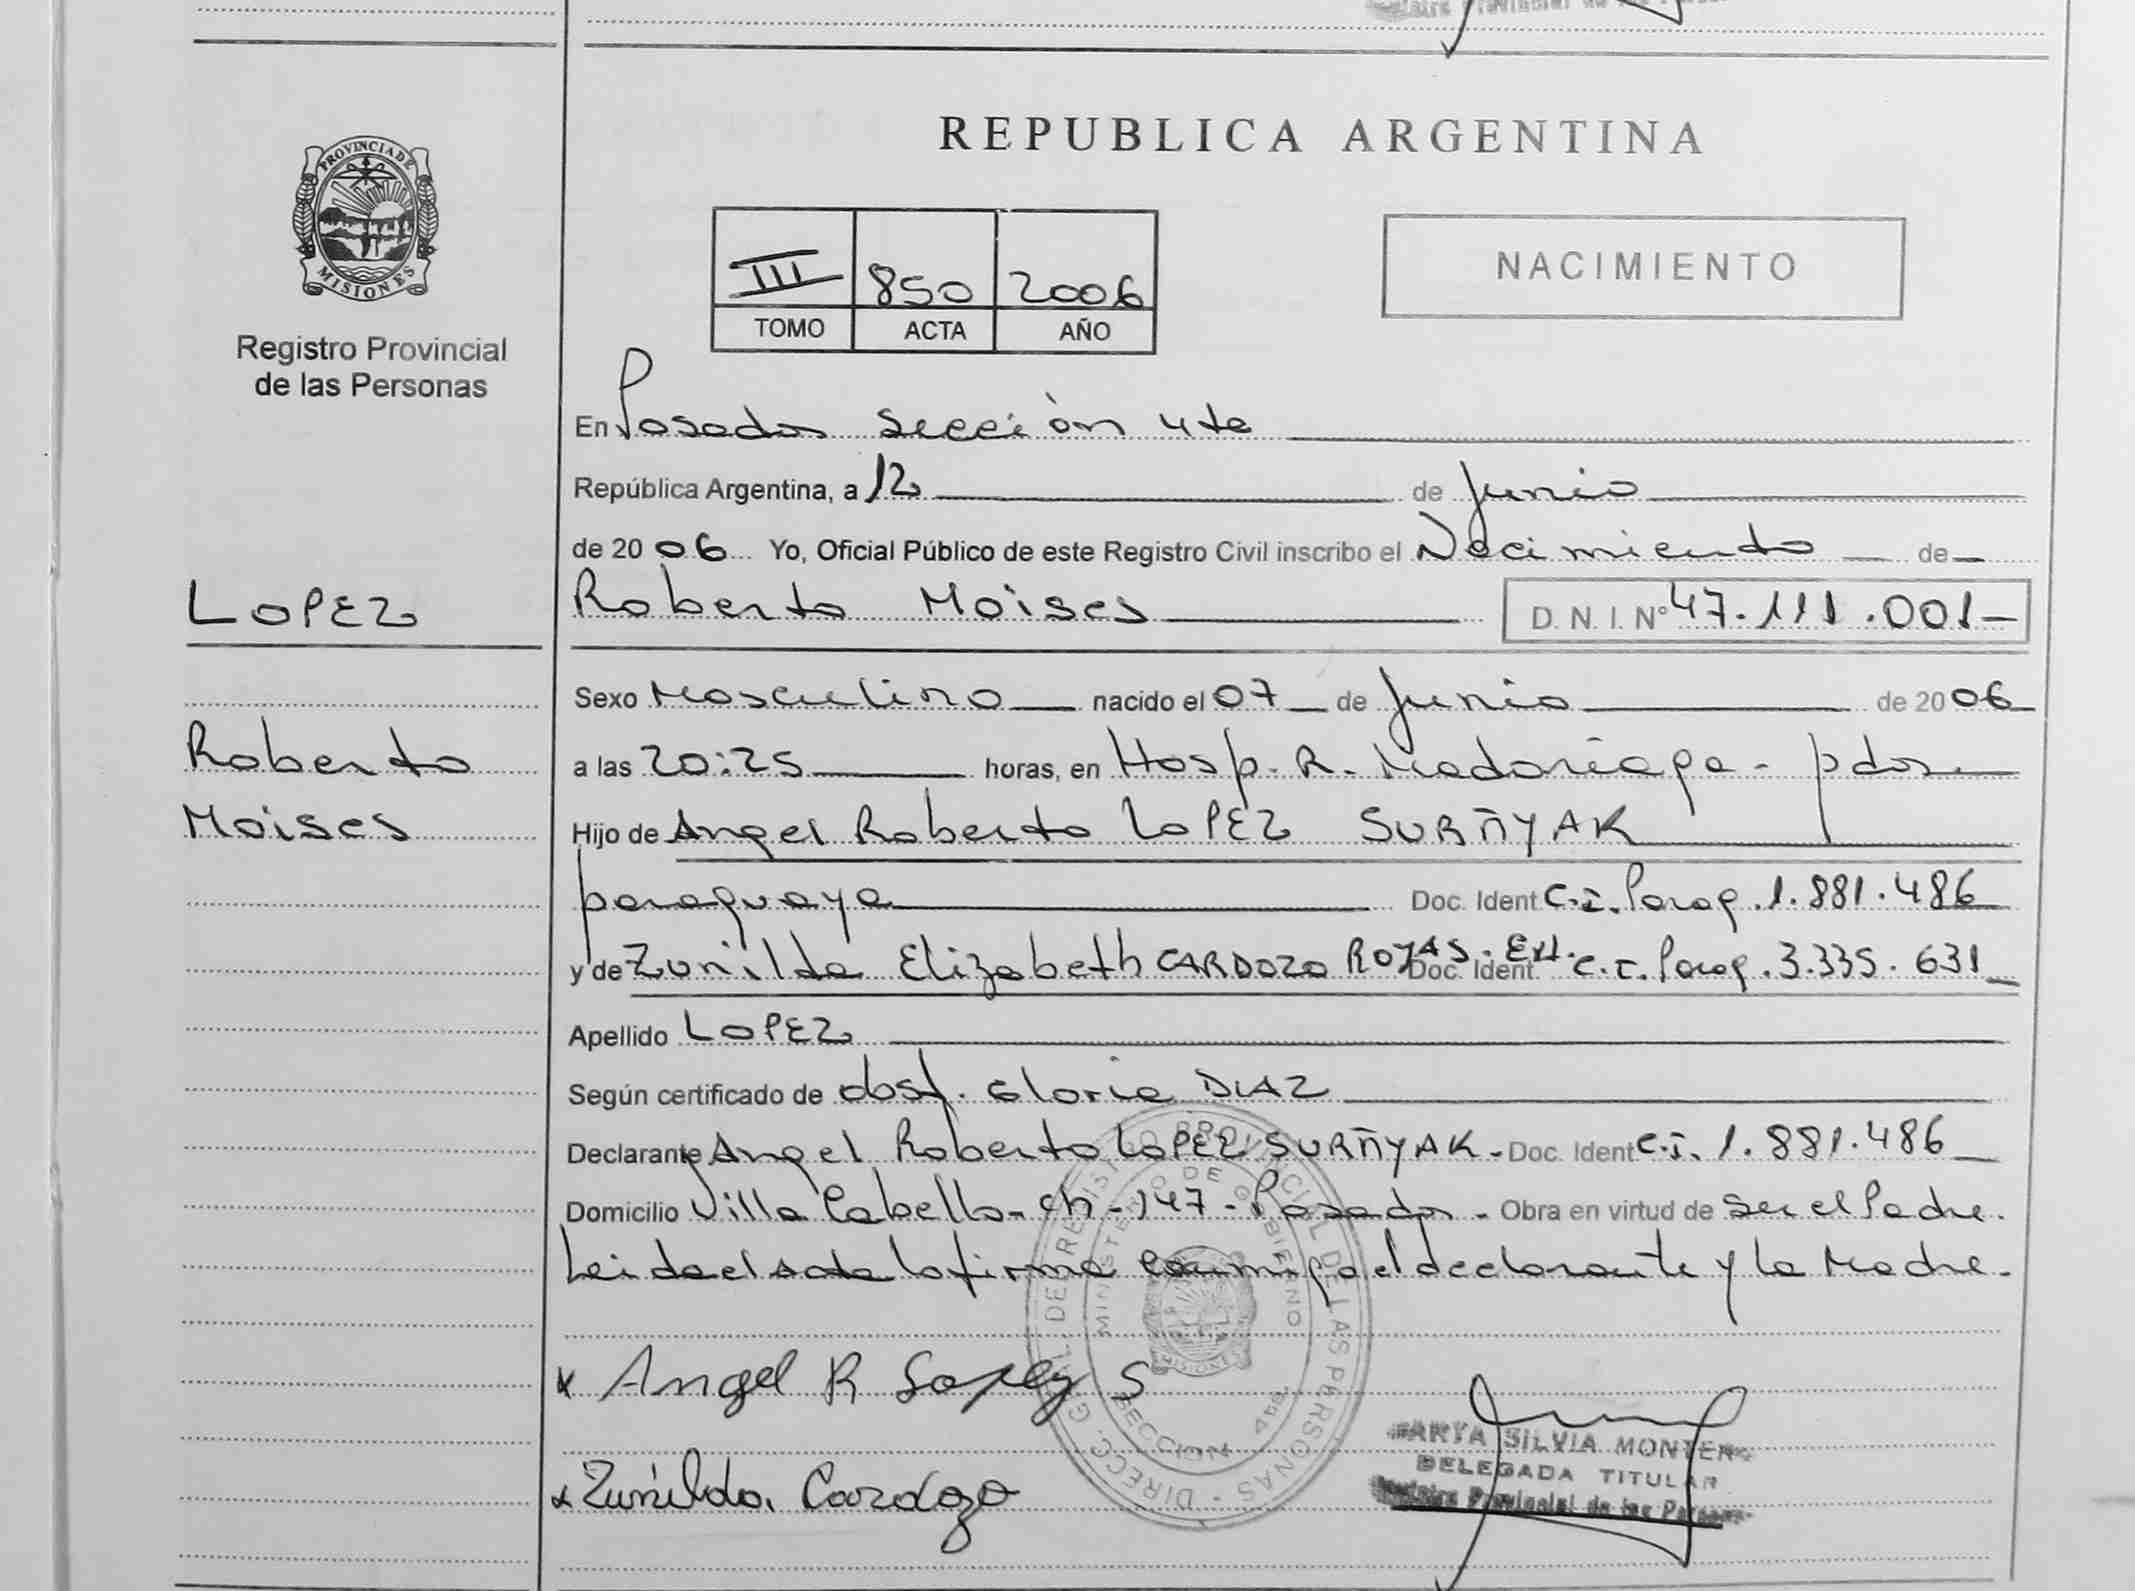 PROVINCIA DE
MISIONES
Registro Provincial
de las Personas
LOPEZ
Roberto
Moises
REPUBLICA ARGENTINA
III 850 2006
TOMO ACTA AÑO
NACIMIENTO
En Posadas sección 4ta
República Argentina, a 12 de Junio
de 2006 Yo, Oficial Público de este Registro Civil inscribo el Nacimiento de
Roberto Moises D. N. I. N° 47.111.001
Sexo Masculino nacido el 07 de Junio de 2006
a las 20:25 horas, en Hosp. R. Madariaga - pdas
Hijo de Angel Roberto LOPEZ SURÑYAK
paraguaya Doc. Ident C.I. Parag. 1.881.486
y de Zunilda Elizabeth CARDOZO ROJAS. Doc. Ident C.I. Parag. 3.335.631
Apellido LOPEZ
Según certificado de obst. Gloria DIAZ
Declarante Angel Roberto LOPEZ SURÑYAK - Doc. Ident C.I. 1.881.486
Domicilio Villa Cabello - ch - 147 - Posadas - Obra en virtud de ser el Padre.
Leida el acta la firma conmigo el declarante y la Madre.
DIRECC. GRAL. DE REGISTRO PROVINCIAL DE LAS PERSONAS
MINISTERIO DE GOBIERNO
MISIONES
SECCION 4ta.
x Angel R Lopez S
x Zunilda Cardozo
SILVIA
DELEGADA TITULAR
Registro Provincial de las Personas